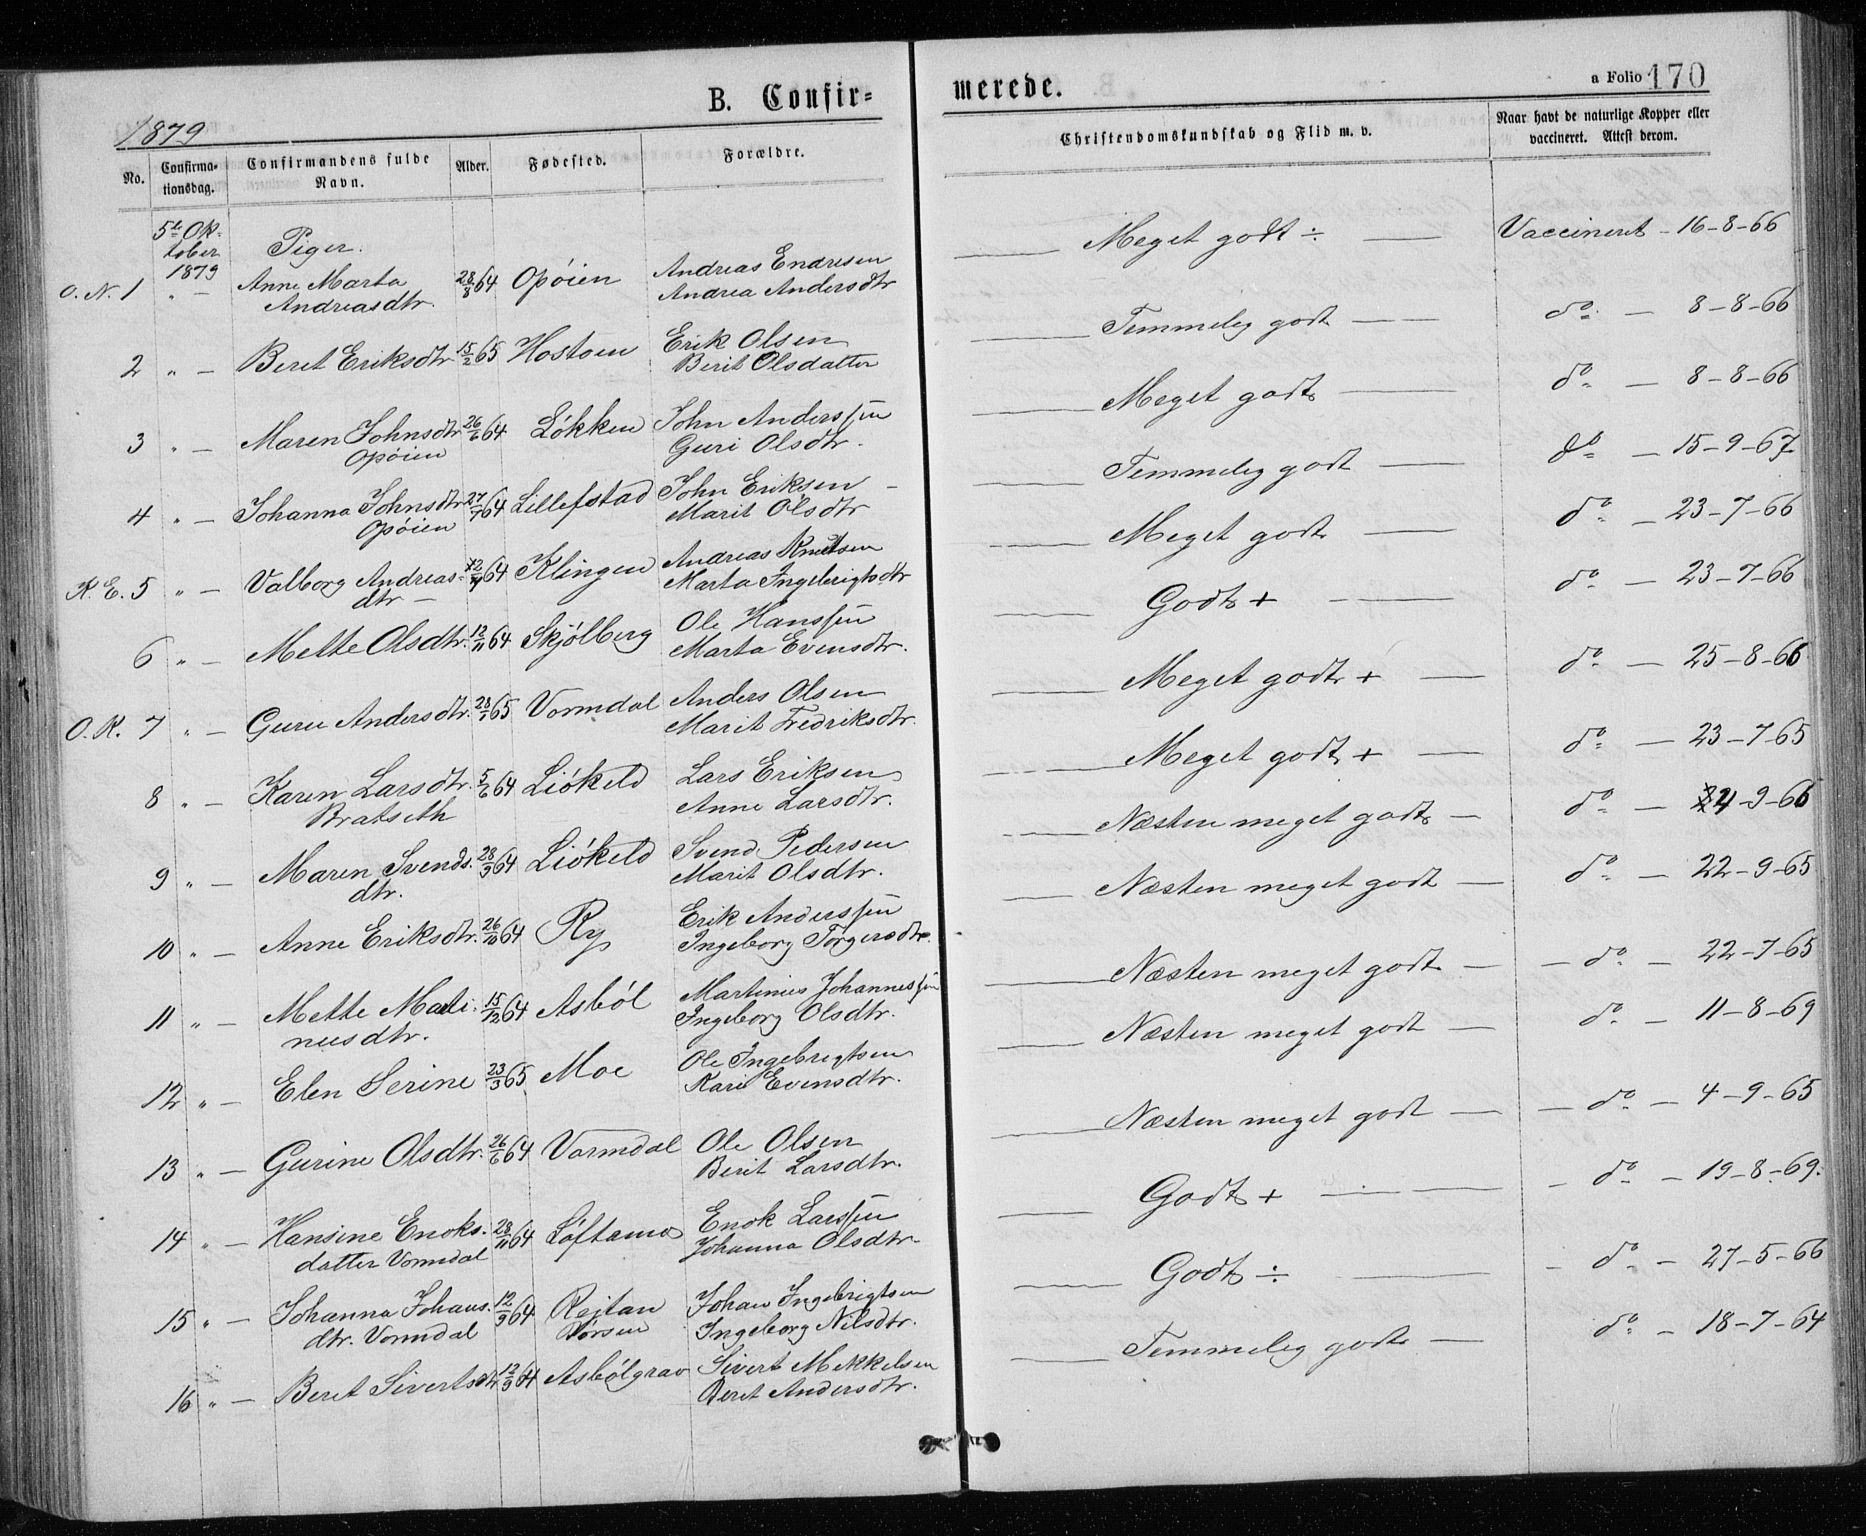 B. Confir=
merede.
a Folio 170
1879
No.
Confirma-
tionsdag.
Confirmandens fulde
Navn.
Alder.
Fødested.
Forældre.
Christendomskundskab og Flid m. v.
Naar havt de naturlige Kopper eller
vaccineret. Attest derom.
5te Ok-
tober
1879
Piger.
O. N. 1 " — Anne Marta 28/8 64 Opøien Andreas Endresen
Andreasdtr. Andrea Andersdtr
Meget godt ÷ — Vaccineret - 16-8-66
2 " — Beret Eriksdtr 15/2 65 Hostoen Erik Olsen
Berit Olsdatter
Temmelig godt — do — 8-8-66
3 " — Maren Johnsdtr 26/6 64 Løkken John Anderssen
Opøien Guri Olsdtr.
Meget godt — do — 8-8-66
4 " — Johanna Johnsdtr 27/7 64 Lillefstad John Eriksen
Opøien Marit Olsdtr
Temmelig godt — do — 15-9-67
K. E. 5 " — Valborg Andreas- 64 Klingen Andreas Knutsen
dtr — Marta Ingebrigtsdtr
Meget godt — do — 23-7-66
6 " — Mette Olsdtr. 12/11 64 Skjølberg Ole Hanssen
Marta Evensdtr.
Godt + — do — 23-7-66
O. K. 7 " — Guru Andersdtr. 28/1 65 Vormdal Anders Olsen
Marit Fredriksdtr.
Meget godt + — do — 25-8-66
8 " — Karen Larsdtr. 5/6 64 Liøkeld Lars Eriksen
Bratseth Anne Larsdtr.
Meget godt + — do — 23-7-65
9 " — Maren Svends. 28/9 64 Liøkeld Svend Pedersen
dtr. Marit Olsdtr.
Næsten meget godt — do — 4-9-66
10 " — Anne Eriksdtr. 26/10 64 Ry Erik Anderssen
Ingeborg Torgersdtr.
Næsten meget godt — do — 22-9-65
11 " — Mette Marti- 15/12 64 Asbøl Martinus Johannessen
nusdtr. Ingeborg Olsdtr.
Næsten meget godt — do — 22-7-65
12 " — Elen Serine 23/3 65 Moe Ole Ingebrigtsen
Kari Evensdtr.
Næsten meget godt — do — 11-8-69
13 " — Gurine Olsdtr. 26/6 64 Vormdal Ole Olsen
Berit Larsdtr.
Næsten meget godt — do — 4-9-65
14 " — Hansine Enoks. 28/11 64 Løftamo Enok Larssen
datter Vormdal Johanna Olsdtr
Godt + — do — 19-8-69.
15 " — Johanna Johans. 12/9 64 Rejtan Johan Ingebrigtsen
dtr. Vormdal Børsen Ingeborg Nilsdtr.
Godt ÷ — do — 27-5-66
16 " — Beret Sivertsdtr 12/9 64 Asbølgrav Sivert Mekkelsen
Beret Andersdtr.
Temmelig godt — do — 18-7-64